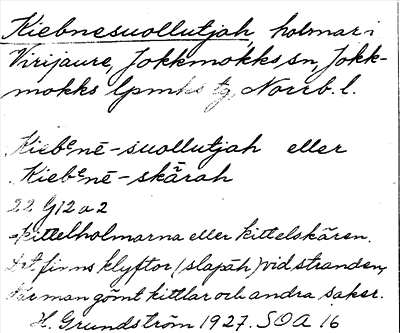 Kiebnesuollutjah, holmar i
Virijaure, Jokkmokks sn, Jokk-
mokks lpmks tg, Norrb. l.
Kiebᵉnē-suollutjah eller
Kiebᵉnē-skārah
22 G12 a 2
=kittelholmarna eller kittelskären.
Det finns klyftor (slapāh) vid stranden,
där man gömt kittlar och andra saker.
H. Grundström 1927. SOA 16